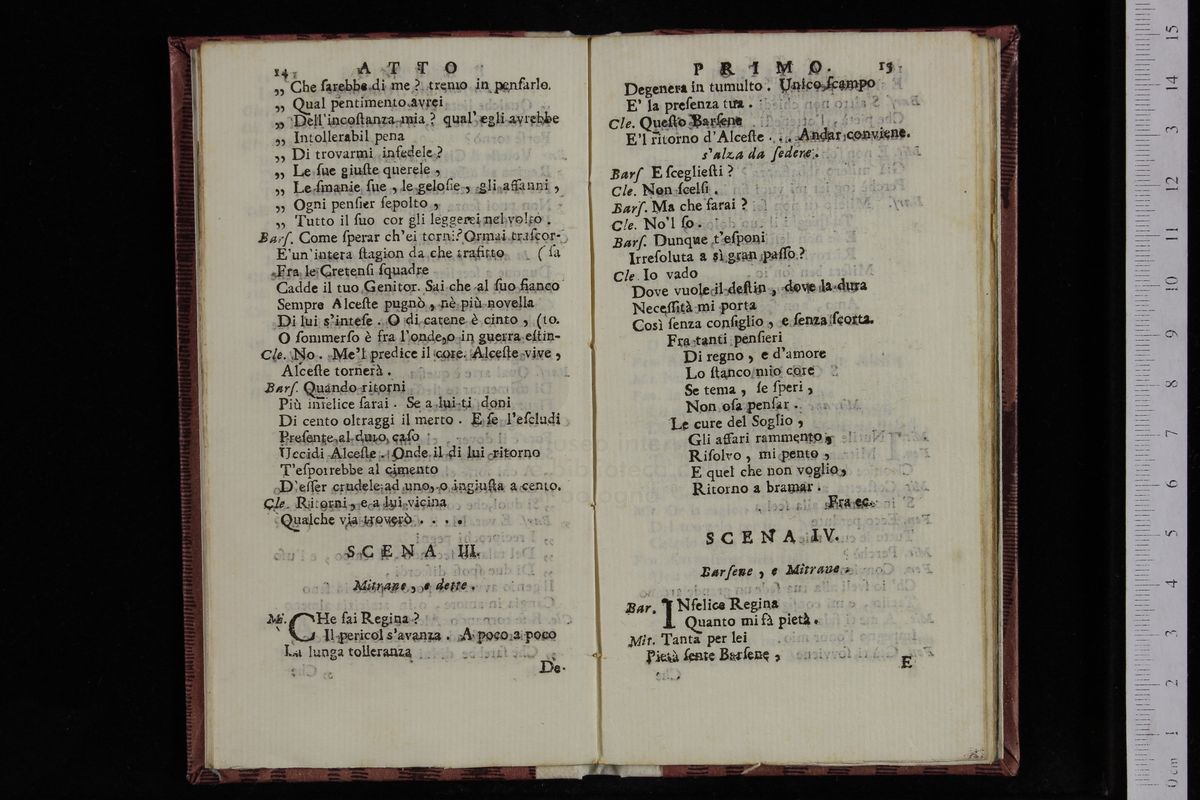 14 ATTO
„ Che ſarebbe di me? tremo in penſarlo.
„ Qual pentimento avrei
„ Dell'incoſtanza mia? qual' egli avrebbe
„ Intollerabil pena
„ Di trovarmi infedele?
„ Le ſue giuſte querele,
„ Le ſmanie ſue, le geloſie, gli affanni,
„ Ogni penſier ſepolto,
„ Tutto il ſuo cor gli leggerei nel volto.
Barſ. Come ſperar ch'ei torni? Ormai traſcor-
E' un'intera ſtagion da che trafitto (ſa
Fra le Cretenſi ſquadre
Cadde il tuo Genitor. Sai che al ſuo fianco
Sempre Alceſte pugnò, nè più novella
Di lui s'inteſe. O di catene è cinto, (to.
O ſommerſo è fra l'onde, o in guerra eſtin-
Cle. No. Me'l predice il core. Alceſte vive,
Alceſte tornerà.
Barſ. Quando ritorni
Più infelice ſarai. Se a lui ti doni
Di cento oltraggi il merto. E ſe l'eſcludi
Preſente al duro caſo
Uccidi Alceſte. Onde il di lui ritorno
T'eſporrebbe al cimento
D'eſſer crudele ad uno, o ingiuſta a cento.
Cle. Ritorni, e a lui vicina
Qualche via troverò . . . .
SCENA III.
Mitrane, e dette.
Mi. CHe fai Regina?
Il pericol s'avanza. A poco a poco
La lunga tolleranza
De-
PRIMO. 15
Degenera in tumulto. Unico ſcampo
E' la preſenza tua.
Cle. Queſto Barſene
E'l ritorno d'Alceſte . . . Andar conviene.
s'alza da ſedere.
Barſ E ſceglieſti?
Cle. Non ſcelſi.
Barſ. Ma che farai?
Cle. No'l ſo.
Barſ. Dunque t'eſponi
Irreſoluta a sì gran paſſo?
Cle. Io vado
Dove vuole il deſtin, dove la dura
Neceſſità mi porta
Così ſenza conſiglio, e ſenza ſcorta.
Fra tanti penſieri
Di regno, e d'amore
Lo ſtanco mio core
Se tema, ſe ſperi,
Non oſa penſar.
Le cure del Soglio,
Gli affari rammento,
Riſolvo, mi pento,
E quel che non voglio,
Ritorno a bramar.
Fra ec.
SCENA IV.
Barſene, e Mitrane.
Bar. INfelice Regina
Quanto mi fà pietà.
Mit. Tanta per lei
Pietà ſente Barſene,
E